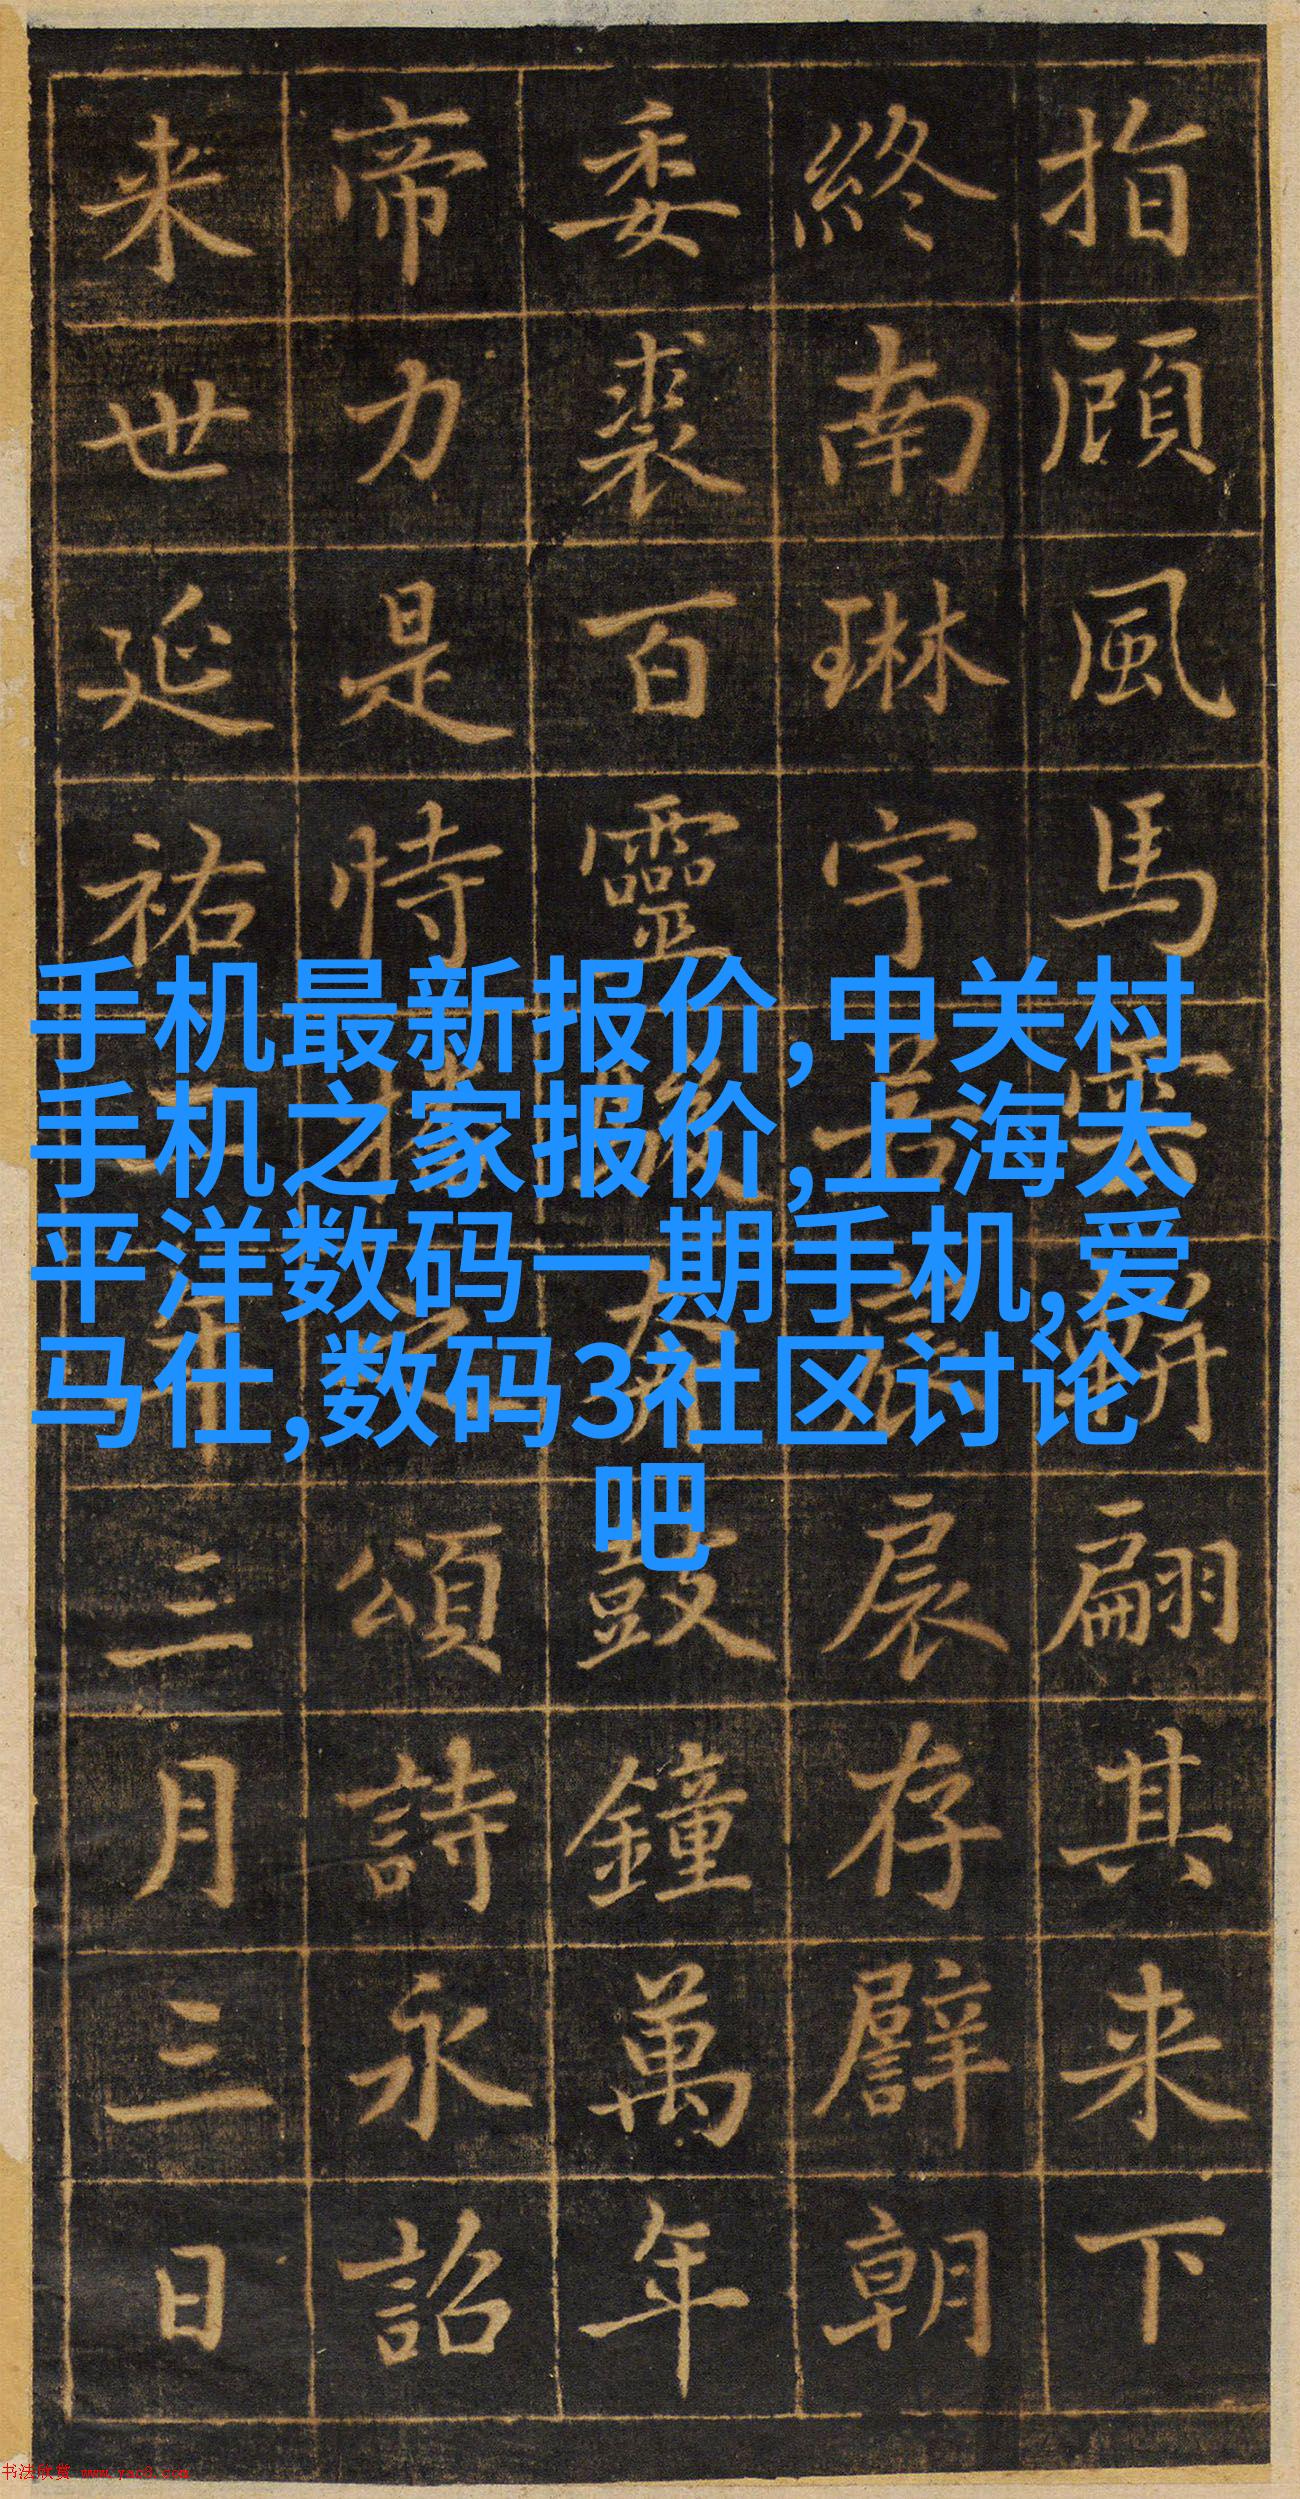 指顧風馬雲翩其来下
終南琳宇若扆存譬朝
委裘百靈鼓鐘萬年
帝力是恃頌詩永詔
来世延祐二年三月三日
手机最新报价,中关村
手机之家报价,上海太
平洋数码一期手机,爱
马仕,数码3社区讨论
吧
书法欣赏 www.yac8.com